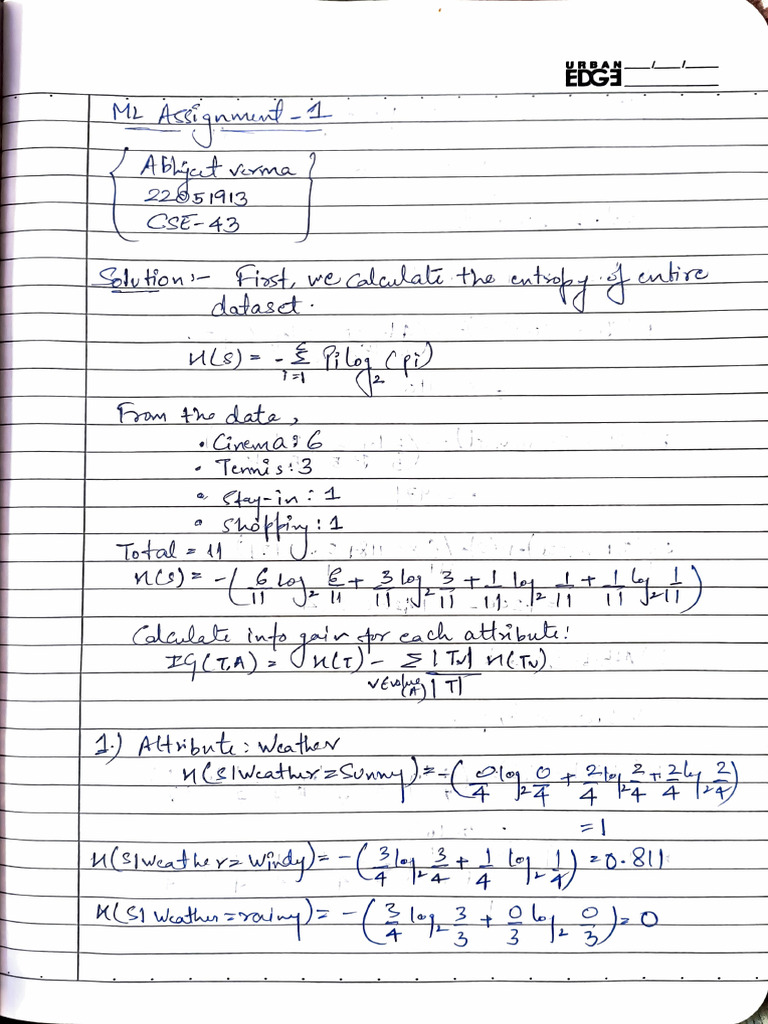 URBAN EDGE __/__/__
ML Assignment - 1
Abhijeet verma
22051913
CSE-43
Solution :- First, we calculate the entropy of entire
dataset.
H(S) = - Σ_{i=1}^{c} Pi log₂ (pi)
From the data,
• Cinema: 6
• Tennis: 3
• Stay-in: 1
• Shopping: 1
Total = 11
H(S) = -(6/11 log₂ 6/11 + 3/11 log₂ 3/11 + 1/11 log₂ 1/11 + 1/11 log₂ 1/11)
Calculate info gain for each attribute:
IG(T,A) = H(T) - Σ_{v∈value(A)} |Tv|/|T| H(Tv)
1.) Attribute: Weather
H(S|Weather=Sunny) = -(0/4 log₂ 0/4 + 2/4 log₂ 2/4 + 2/4 log₂ 2/4)
= 1
H(S|weather=Windy) = -(3/4 log₂ 3/4 + 1/4 log₂ 1/4) = 0.811
H(S|Weather=rainy) = -(3/4 log₂ 3/3 + 0/3 log₂ 0/3) = 0